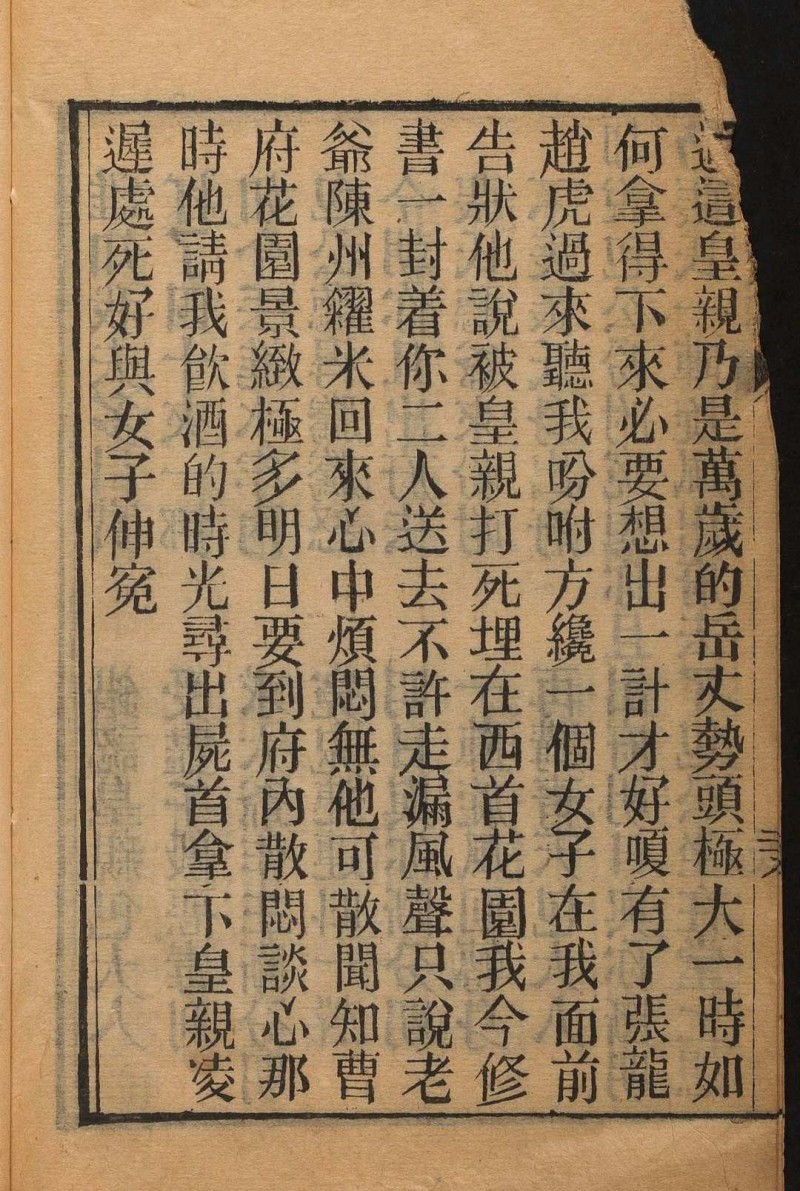 這皇親乃是萬歲的岳丈勢頭極大一時如
何拿得下來必要想出一計才好嗄有了張龍
趙虎過來聽我吩咐方纔一個女子在我面前
告狀他說被皇親打死埋在西首花園我今修
書一封着你二人送去不許走漏風聲只說老
爺陳州糴米回來心中煩悶無他可散聞知曹
府花園景緻極多明日要到府內散悶談心那
時他請我飮酒的時光尋出屍首拿下皇親凌
遲處死好與女子伸寃